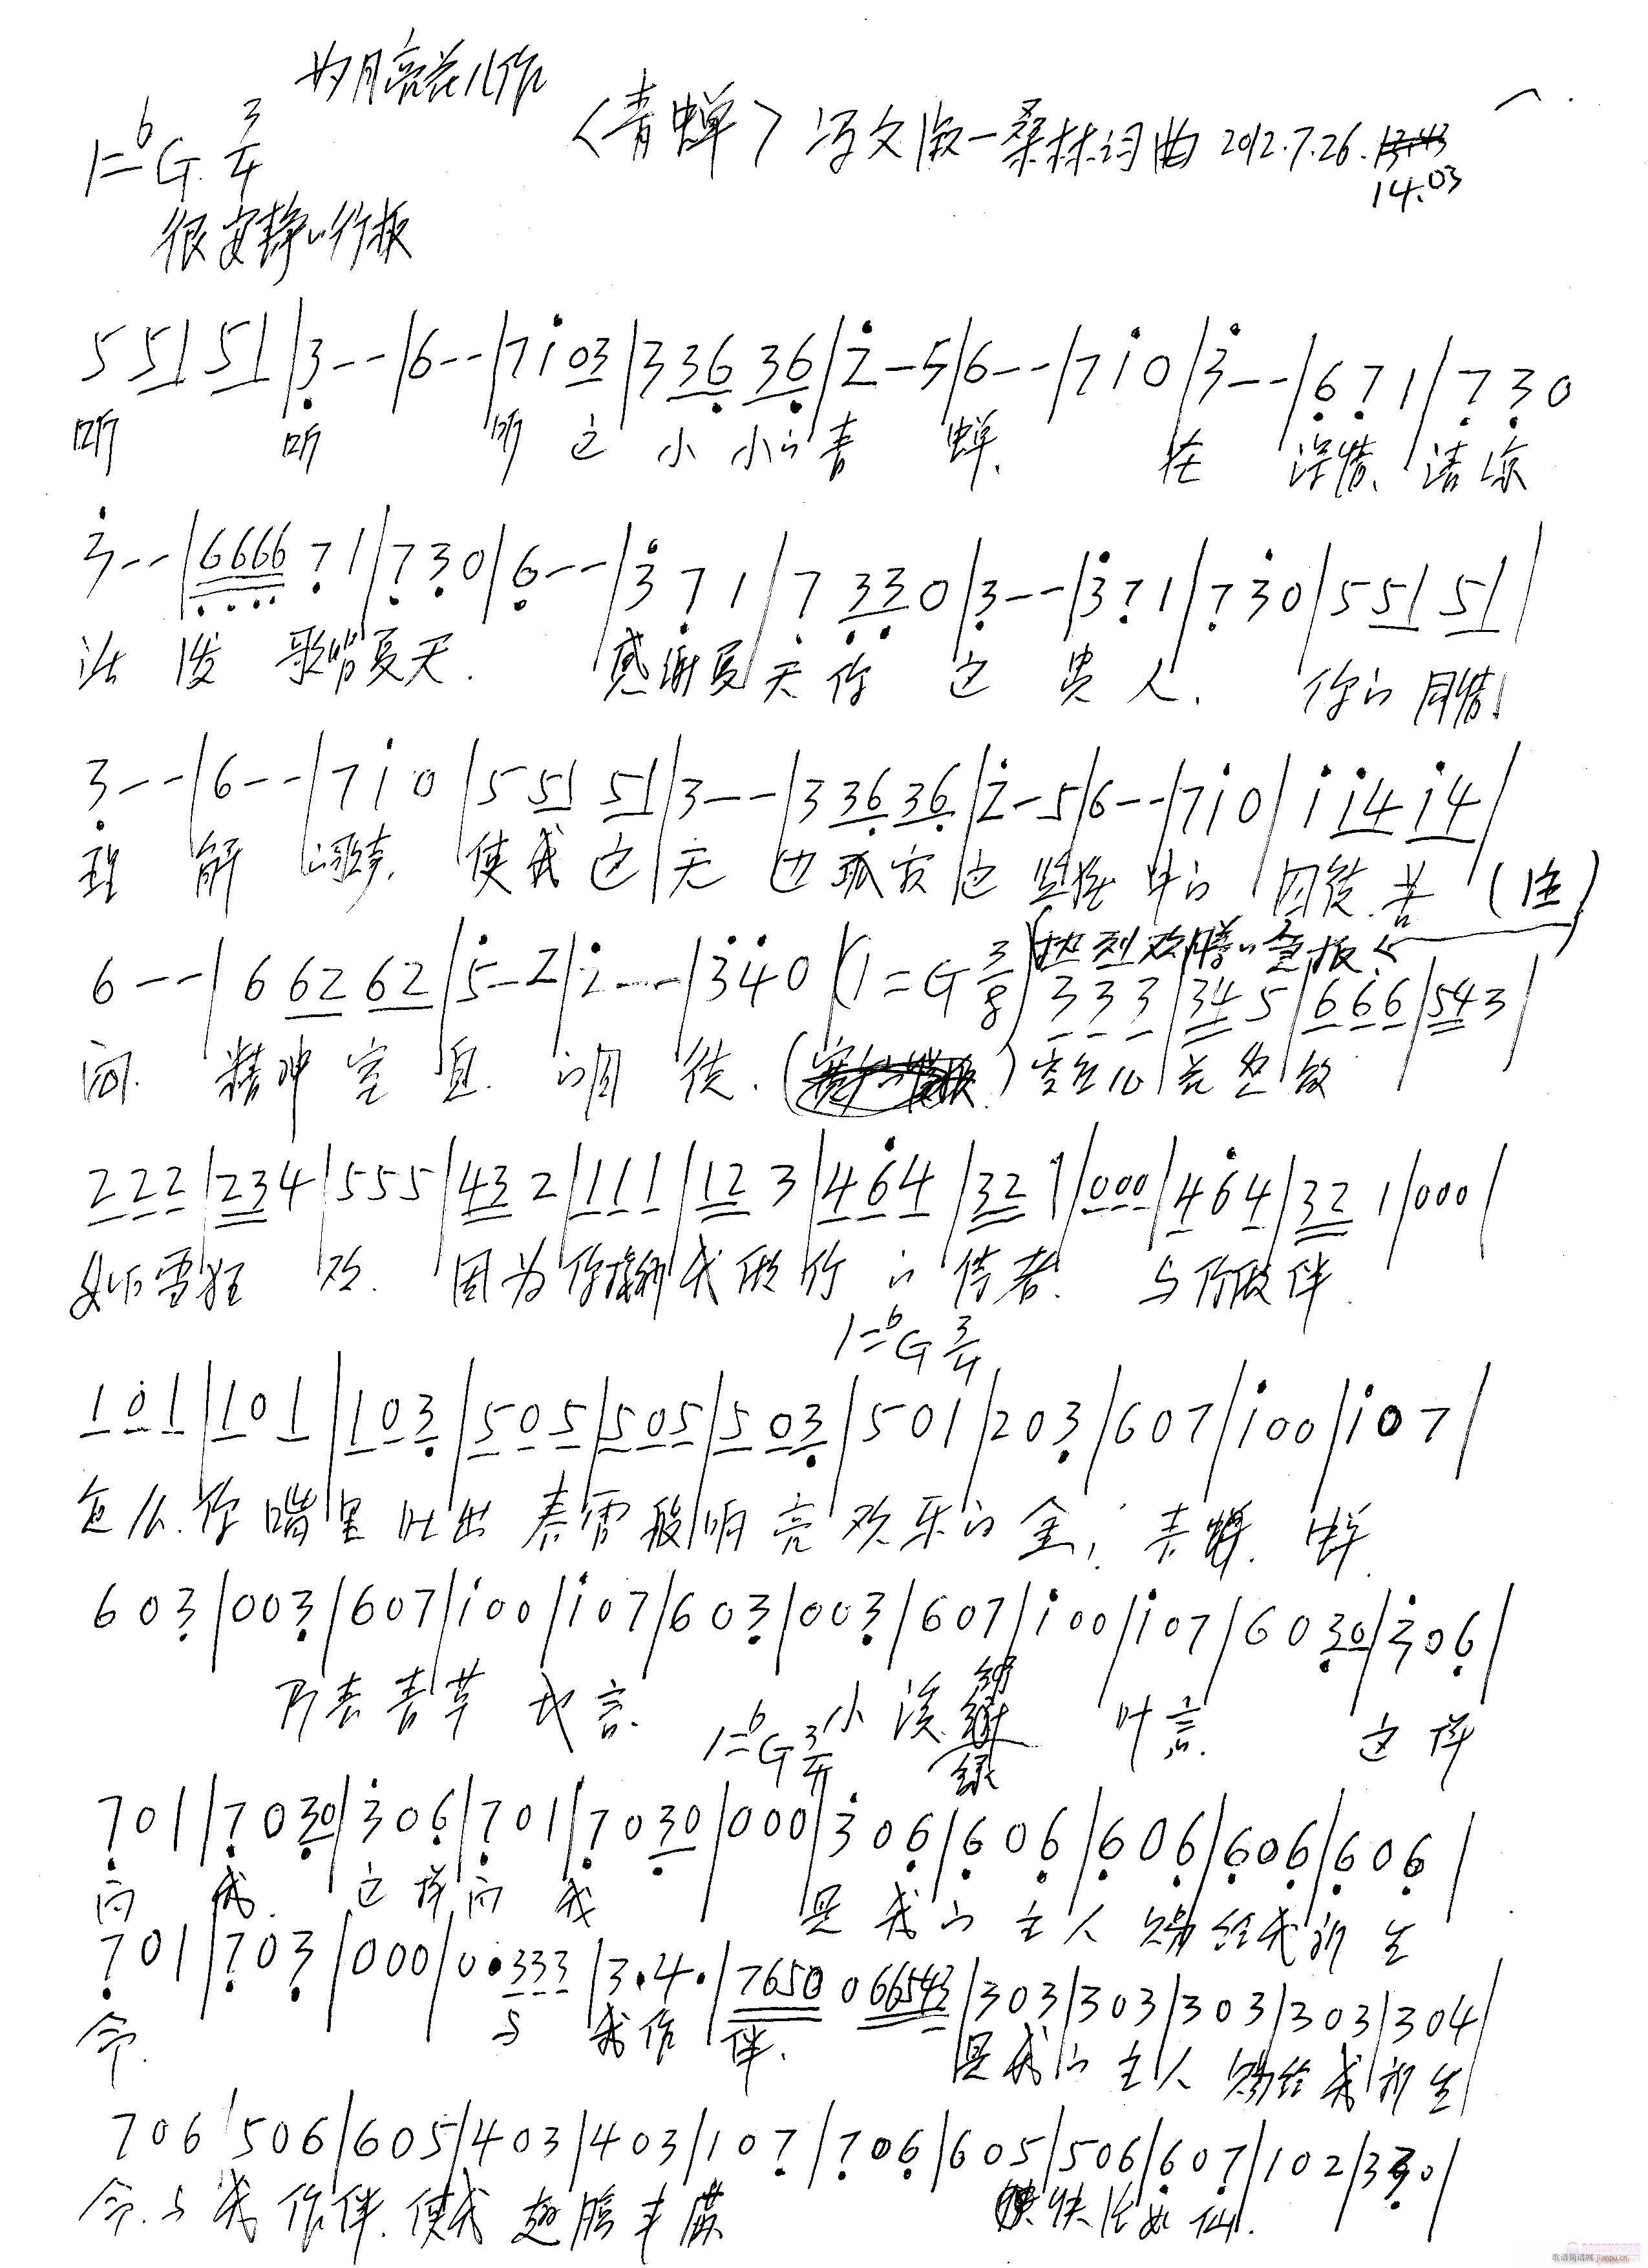 为月亮花儿作
1=♭G 3/4 《青蝉》 词曲 2012.7.26.
14.03
很安静的行板
5 51 51 | 3 - - | 6 - - | 7 1 03 | 3 36 36 | 2 - 5 | 6 - - | 7 1 0 | 3 - - | 6 7 1 | 7 3 0
听 听 听 这 小 小的青 蝉. 在 深情、清凉
3 - - | 6666 7 1 | 7 3 0 | 6 - - | 3 7 1 | 7 33 0 | 3 - - | 3 7 1 | 7 3 0 | 5 51 51 |
活 泼 歌唱夏天. 感谢夏天你 这 贵 人. 你的 同情
3 - - | 6 - - | 7 1 0 | 5 51 51 | 3 - - | 3 36 36 | 2 - 5 | 6 - - | 7 1 0 | 1 14 14 |
理 解 的歌声. 使我 这 无 边孤寂 这 监 中的 囚徒.苦
6 - - | 6 62 62 | 5 - 2 | 2 - - | 3 4 0 (1=G 3/8) 3 3 3 | 34 5 | 6 6 6 | 54 3 |
热烈欢腾的急板
闷. 精神 室 息 的囚 徒.
2 2 2 | 23 4 | 5 5 5 | 43 2 | 1 1 1 | 12 3 | 4 6 4 | 32 1 | 0 0 0 | 4 6 4 | 32 1 | 0 0 0 |
如雪狂 欢. 因为你接纳我做你 的 侍者. 与你做伴.
1=♭G 3/4
1 0 1 | 1 0 1 | 1 0 3 | 5 0 5 | 5 0 5 | 5 0 3 | 5 0 1 | 2 0 3 | 6 0 7 | 1 0 0 | 1 0 7 |
怎么.你 嘴里 吐出 春雷般响亮 欢乐的 金, 青蝉. 蝉.
6 0 3 | 0 0 3 | 6 0 7 | 1 0 0 | 1 0 7 | 6 0 3 | 0 0 3 | 6 0 7 | 1 0 0 | 1 0 7 | 6 0 30 | 3 0 6 |
青青草 也言. 小溪 绿 叶言. 这样
1=♭G 3/4
7 0 1 | 7 0 30 | 3 0 6 | 7 0 1 | 7 0 30 | 0 0 0 | 3 0 6 | 6 0 6 | 6 0 6 | 6 0 6 | 6 0 6 |
向 我. 这样向 我 是 我的 主人 赐给我新 生
7 0 1 | 7 0 3 | 0 0 0 | 0. 333 | 3. 4. | 7650 0 66543 | 3 0 3 | 3 0 3 | 3 0 3 | 3 0 3 | 3 0 4 |
命. 与 我作 伴. 是我的 主人 赐给我新生
7 0 6 | 5 0 6 | 6 0 5 | 4 0 3 | 4 0 3 | 1 0 7 | 7 0 6 | 6 0 5 | 5 0 6 | 6 0 7 | 1 0 2 | 3 3 0 |
命.与 我 作伴.使我 翅膀丰满 快活如仙.
歌谱简谱网 jianpu.cn